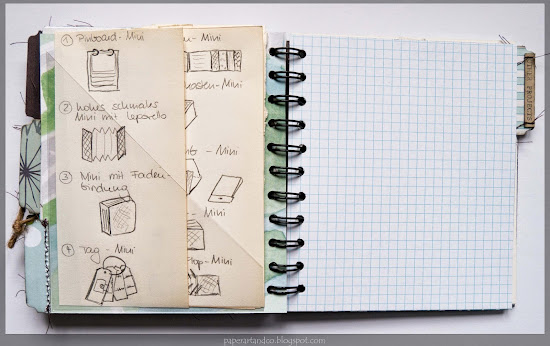 ① Pinboard-Mini
② hohes schmales
Mini mit Leporello
③ Mini mit Faden-
bindung
④ Tag - Mini
- Mini
kasten-Mini
- Mini
- Mini
-Mini
PROJECTS
paperartandco.blogspot.com